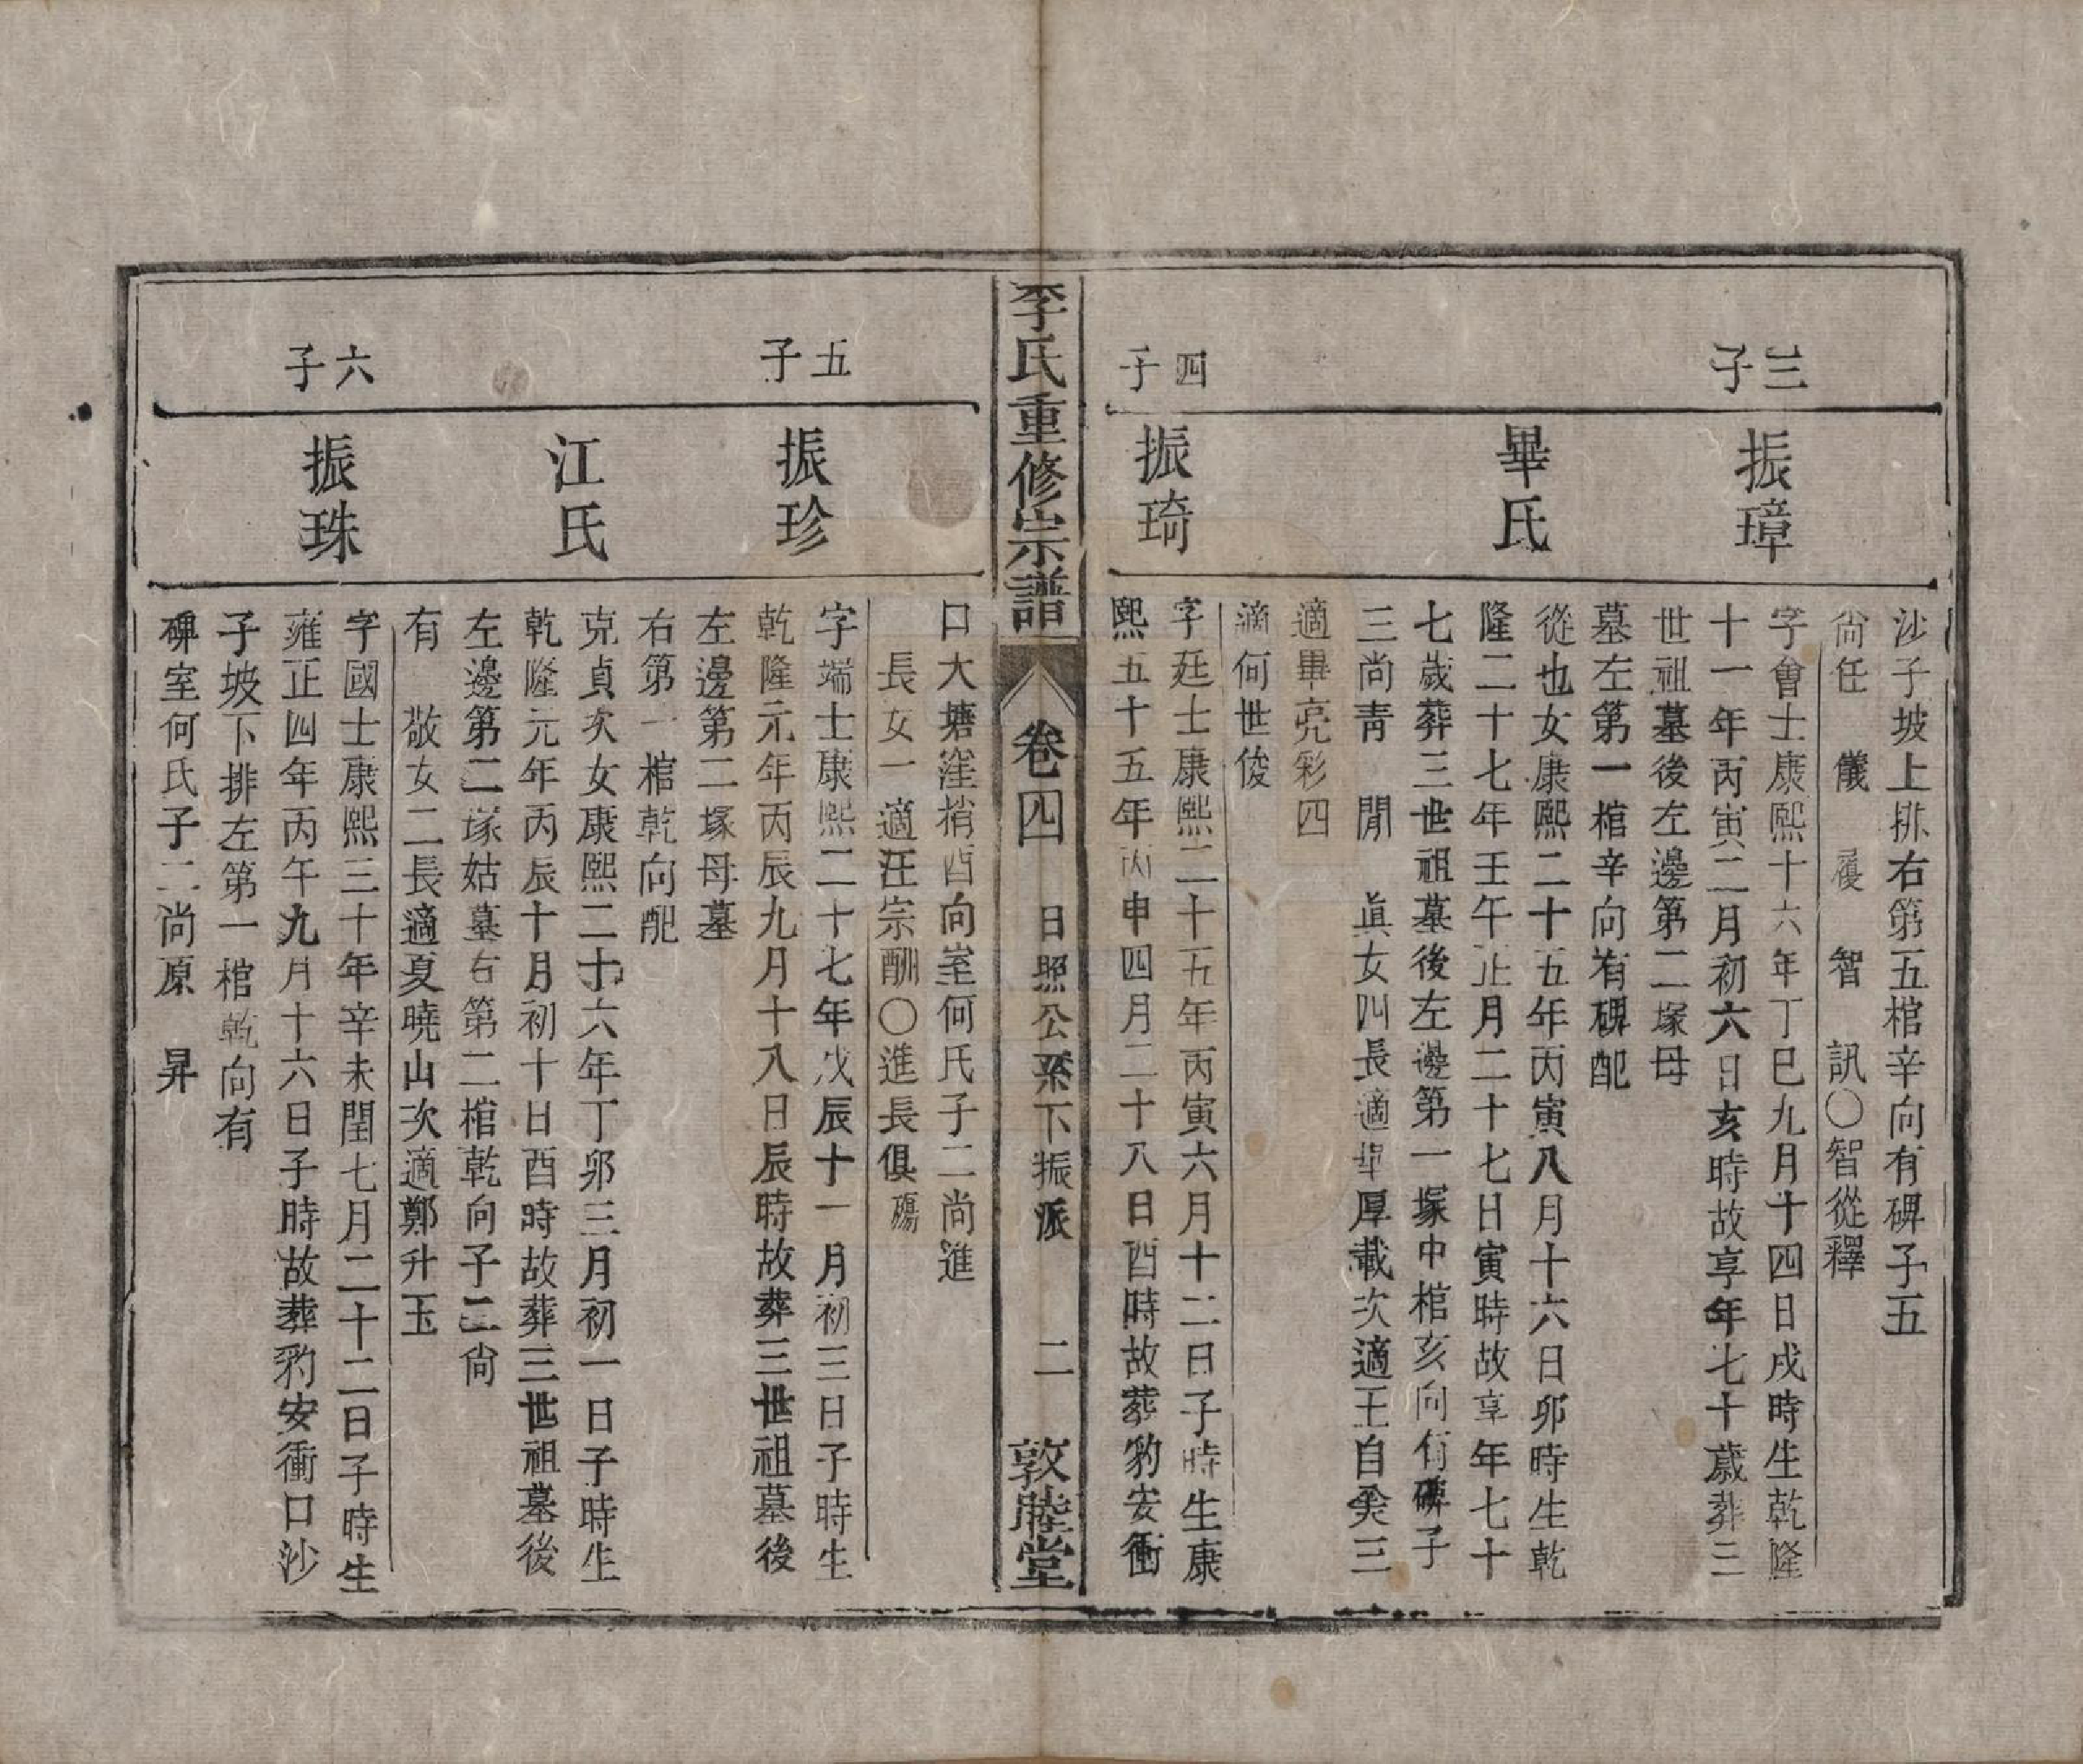 沙子坡上排右第五棺辛向有碑子五
尙任 儀 履 智 訊〇智從釋
三子
振璋
字會士康熙十六年丁巳九月十四日戌時生乾隆
十一年丙寅二月初六日亥時故享年七十歲葬三
世祖墓後左邊第二塚母
墓左第一棺辛向有碑配
畢氏
從也女康熙二十五年丙寅八月十六日卯時生乾
隆二十七年壬午正月二十七日寅時故享年七十
七歲葬三世祖墓後左邊第一塚中棺亥向有碑子
三尚靑 閒 眞女四長適畢厚載次適王自癸三
適畢亮彩四
適何世俊
四子
振琦
字廷士康熙二十五年丙寅六月十二日子時生康
熙五十五年丙申四月二十八日酉時故葬豹安衝
李氏重修宗譜
卷四 日照公系下振派 二
敦睦堂
口大塘窪梢酉向室何氏子二尚進
長女一適汪宗酬〇進長俱殤
五子
振珍
字端士康熙二十七年戊辰十一月初三日子時生
乾隆元年丙辰九月十八日辰時故葬三世祖墓後
左邊第二塚母墓
右第一棺乾向配
江氏
克貞次女康熙二十六年丁卯三月初一日子時生
乾隆元年丙辰十月初十日酉時故葬三世祖墓後
左邊第二塚姑墓右第二棺乾向子二尙
有 敬女二長適夏曉山次適鄭升玉
六子
振珠
字國士康熙三十年辛未閏七月二十二日子時生
雍正四年丙午九月十六日子時故葬豹安衝口沙
子坡下排左第一棺乾向有
碑室何氏子二尚原 昇